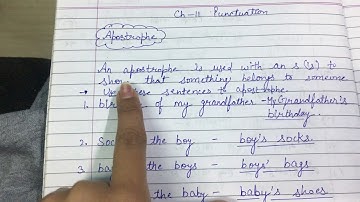 Ch-11 Punctuation
Apostrophe
An apostrophe is used with an s ('s) to
show that something belongs to someone
→ these sentences to apostrophe
1. of my grandfather - My Grandfather's
birthday.
2. the boy - boy's socks.
3. the boys - boys' bags.
the baby - baby's shoes.